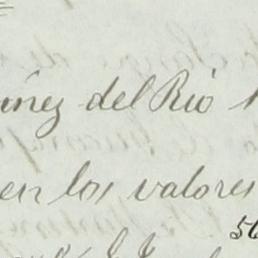 únez del Rio
en los valores
56